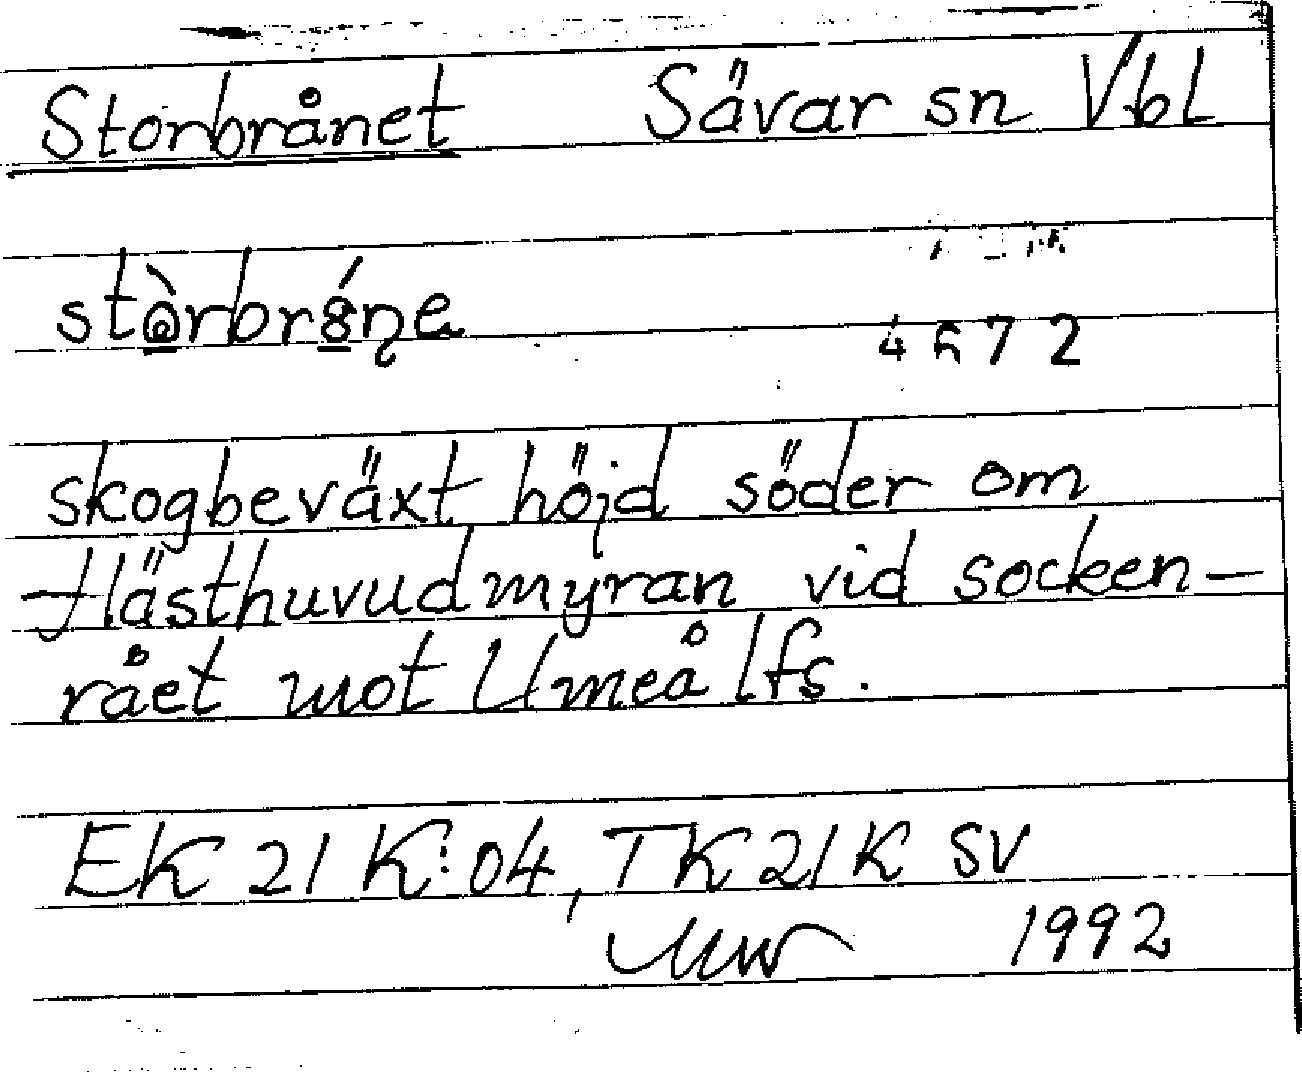 Storbrånet Sävar sn Vbl
skogbeväxt höjd söder om
Hästhuvudmyran vid socken-
rået mot Umeå lfs.
4572
EK 21 K:04, TK 21 K SV
1992